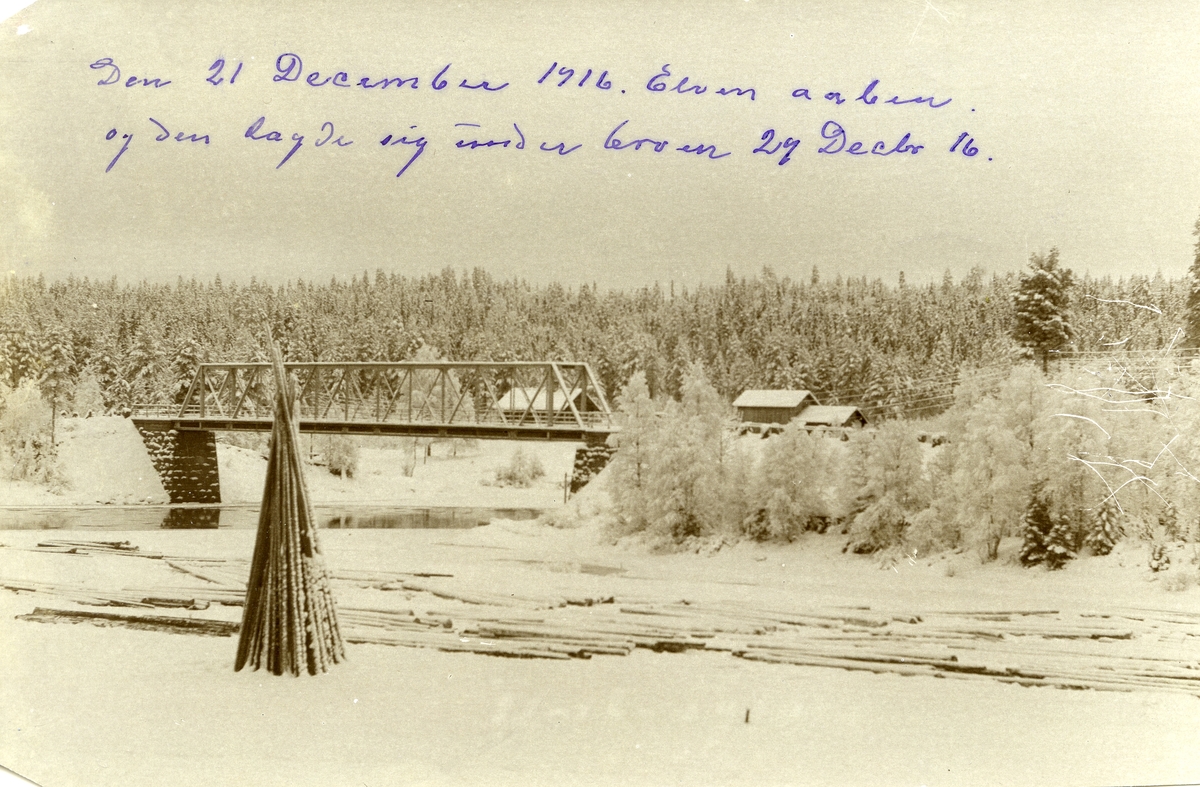 Den 21 December 1916. Elven aaben.
og den lagde sig under broen 29 Decbr 16.